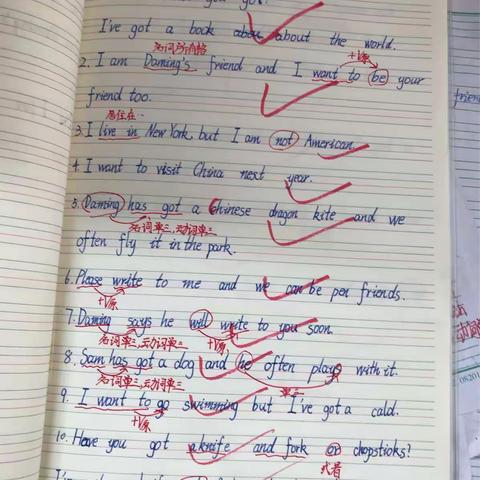 you got?
I've got a book about about the world.
名词所有格 +V原
2. I am Daming's friend and I want to be your
friend too.
居住在…
3. I live in New York, but I am not American.
4. I want to visit China next year.
5. Daming has got a Chinese dragon kite and we
名词单三,动词单三
often fly it in the park.
6. Please write to me and we can be pen friends.
+V原
7. Daming says he will write to you soon.
名词单三,动词单三 +V原
8. Sam has got a dog and he often plays with it.
名词单三,动词单三 单三
9. I want to go swimming but I've got a cald.
+V原
10. Have you got a knife and fork or chopsticks?
或者
friend